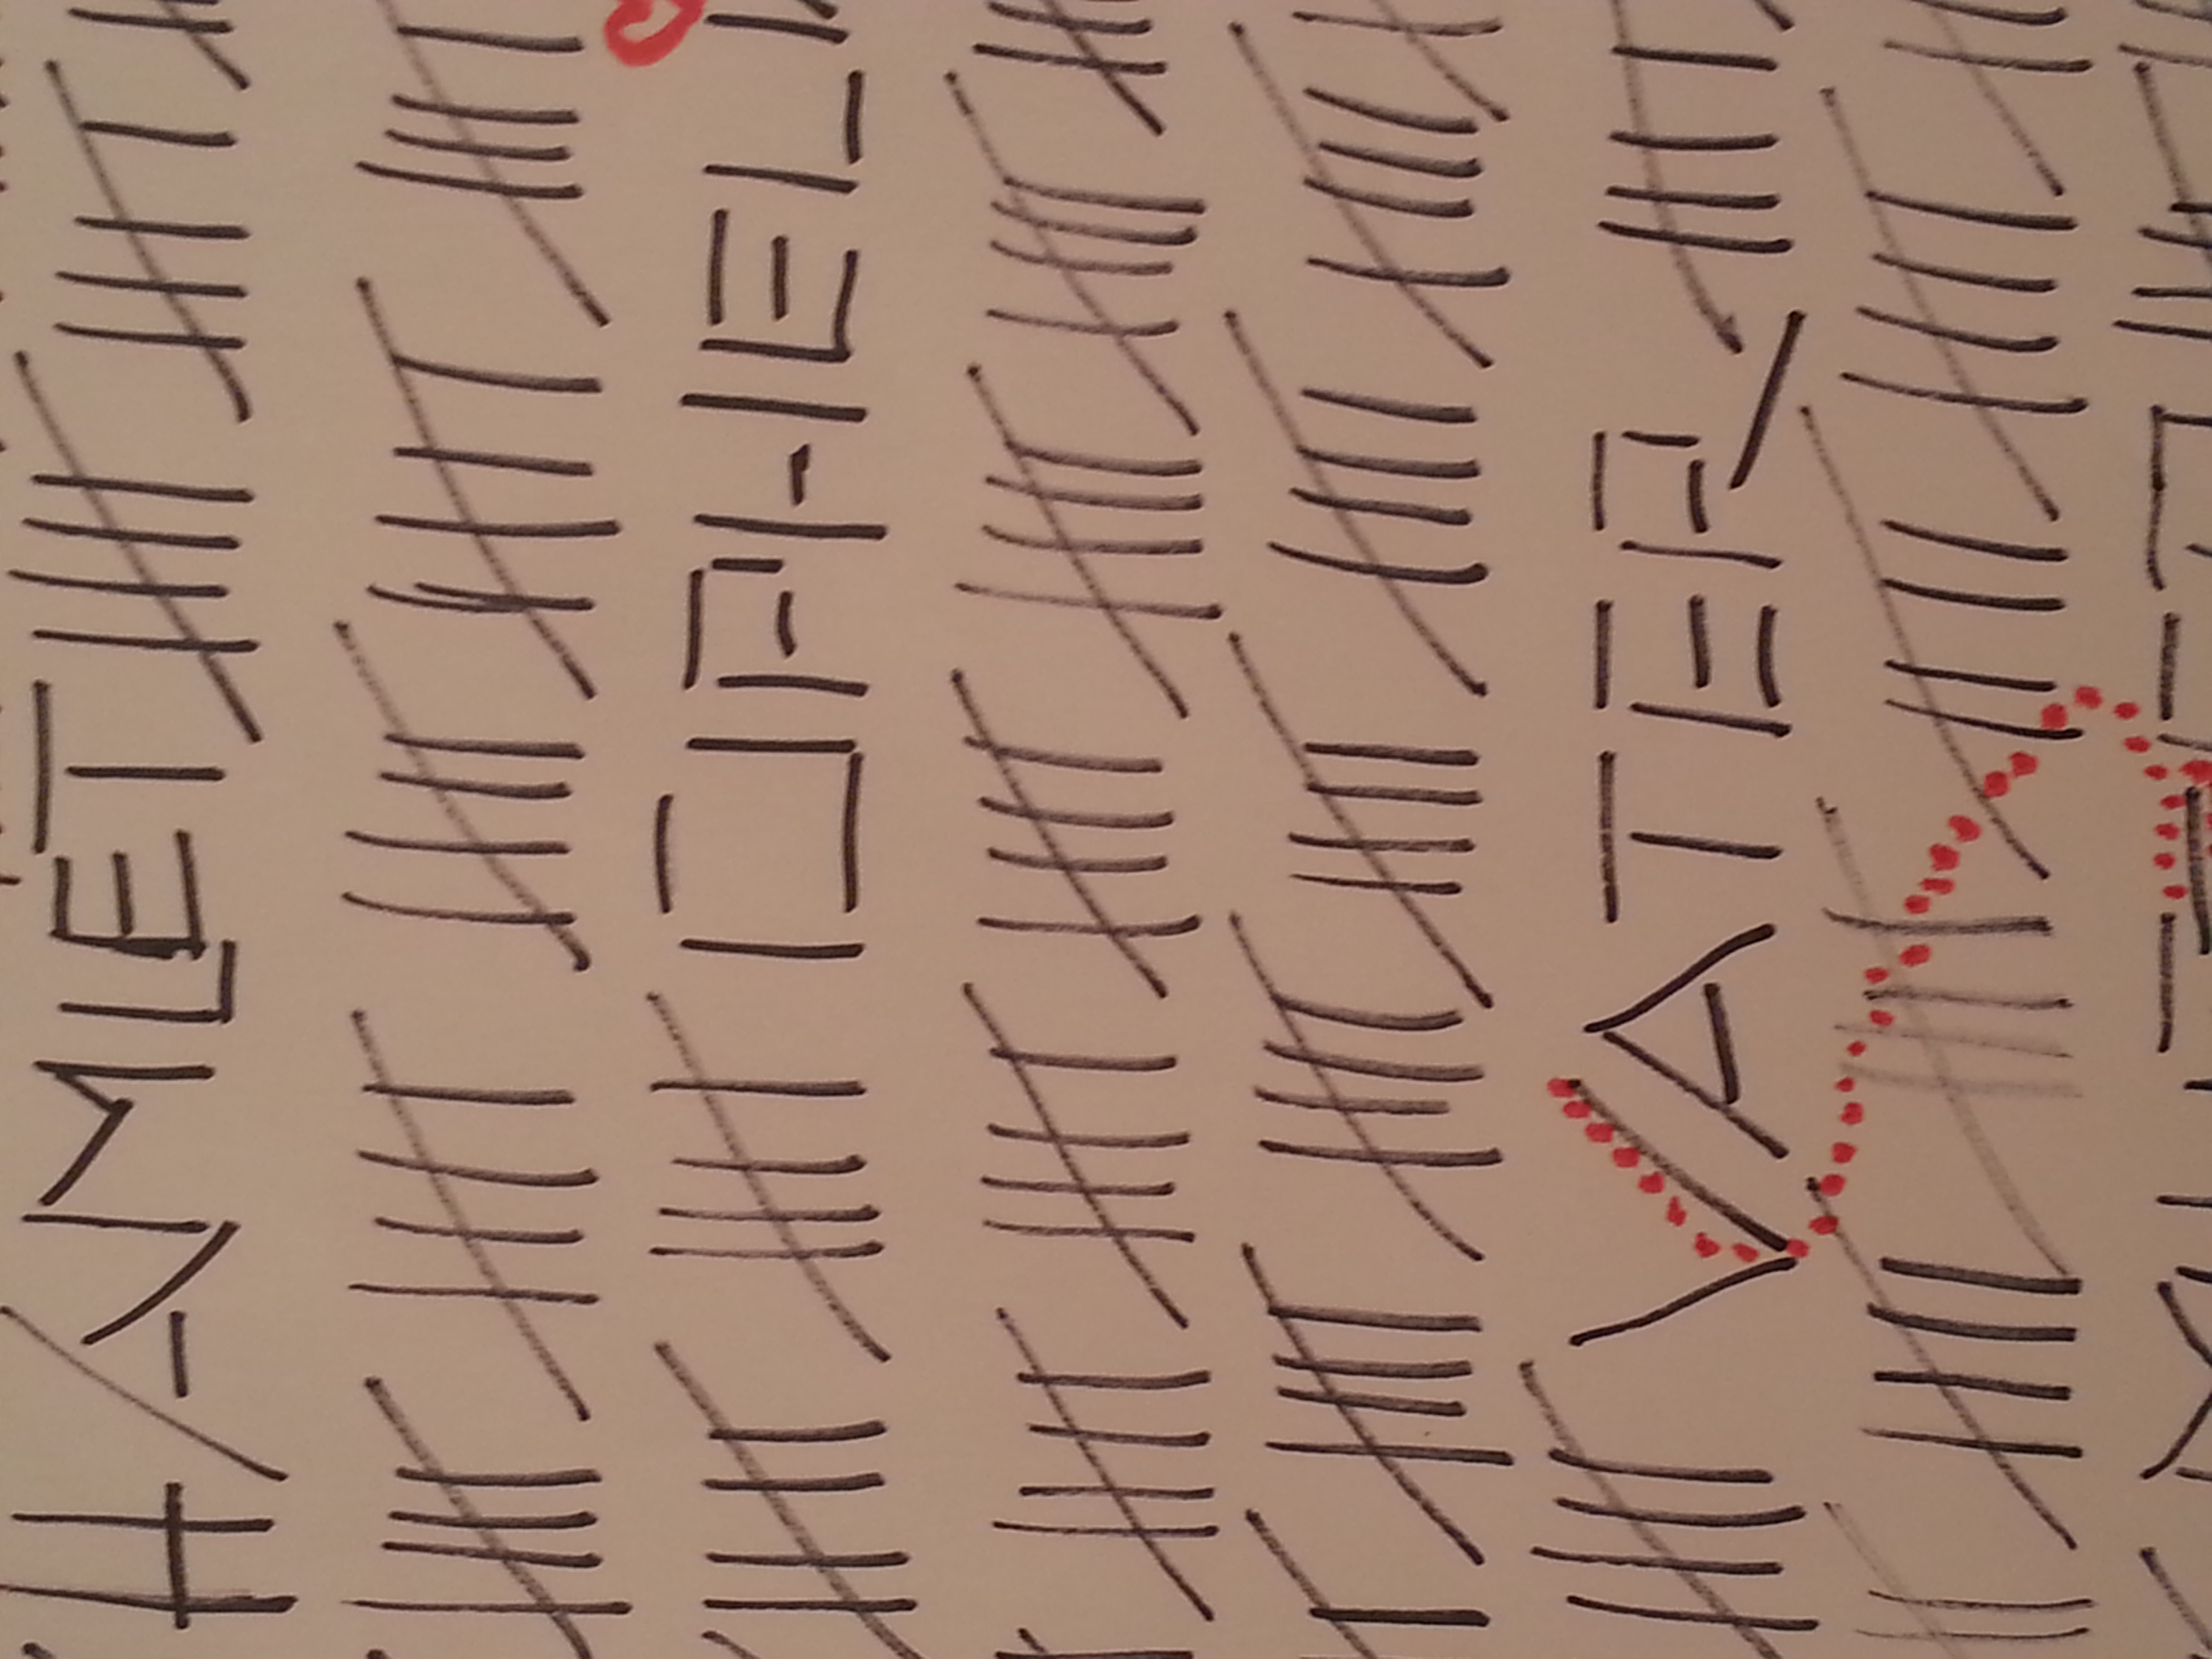 HAMLET
OPHELI
VATER